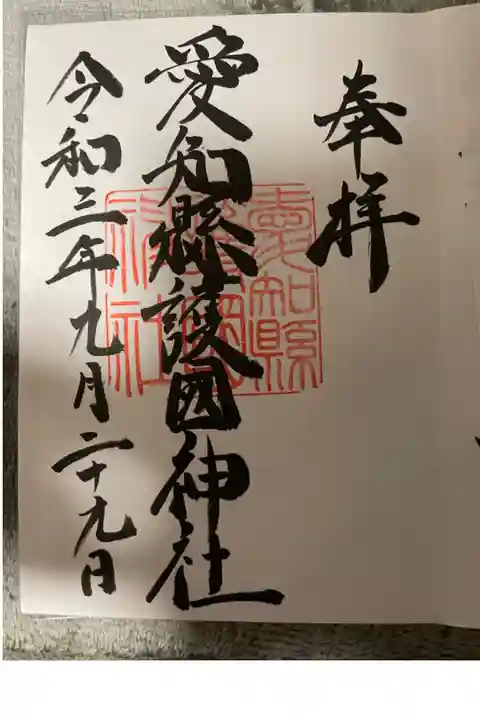 奉拝
愛知縣護国神社
愛知縣
護國
神社
令和三年九月二十九日